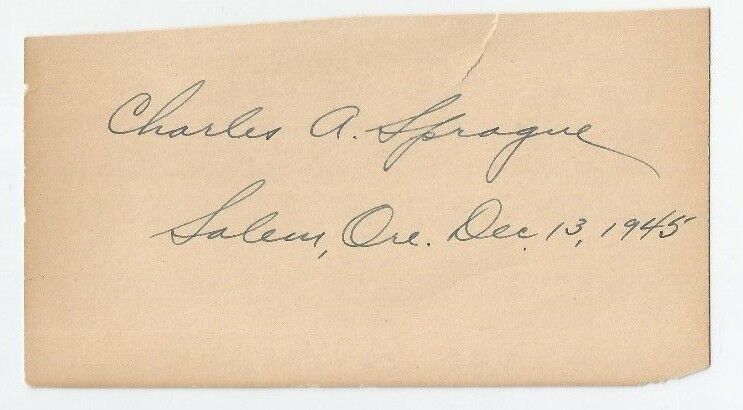 Charles A. Sprague
Salem, Ore. Dec. 13, 1945